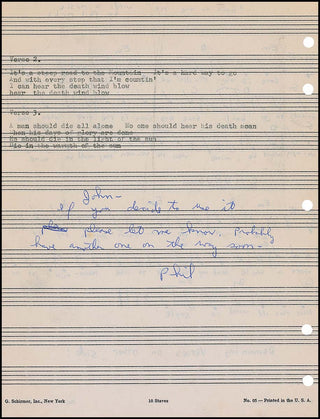 Verse 2.
It's a steep road to the mountain   It's a hard way to go
And with every step that I'm countin'
I can hear the death wind blow
hear the death wind blow
Verse 3.
A man should die all alone   No one should hear his death moan
When his days of glory are done
He should die in the light of the sun
Die in the warmth of the sun
John—
If you decide to use it
please let me know. Probably
have another one on the way soon—
Phil
G. Schirmer, Inc., New York   16 Staves   No. 05 — Printed in the U. S. A.